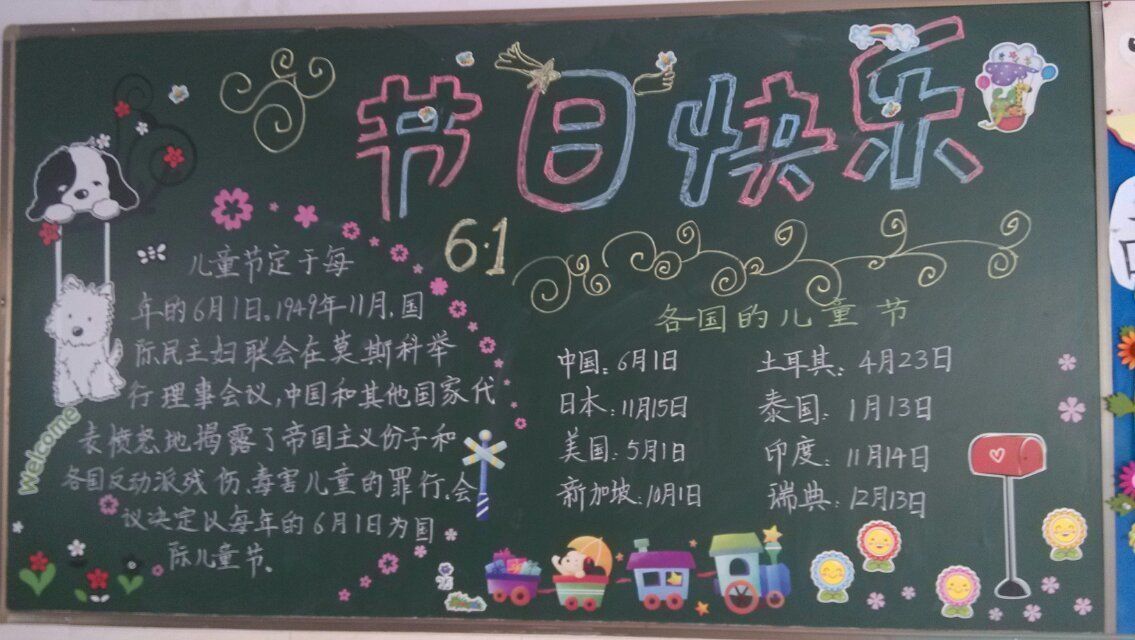 节日快乐
6.1
儿童节定于每
年的6月1日.1949年11月.国
际民主妇联会在莫斯科举
行理事会议,中国和其他国家代
表愤怒地揭露了帝国主义份子和
各国反动派残伤、毒害儿童的罪行.会
议决定以每年的6月1日为国
际儿童节.
Welcome
各国的儿童节
中国:6月1日
日本:11月15日
美国:5月1日
新加坡:10月1日
土耳其:4月23日
泰国:1月13日
印度:11月14日
瑞典:12月13日